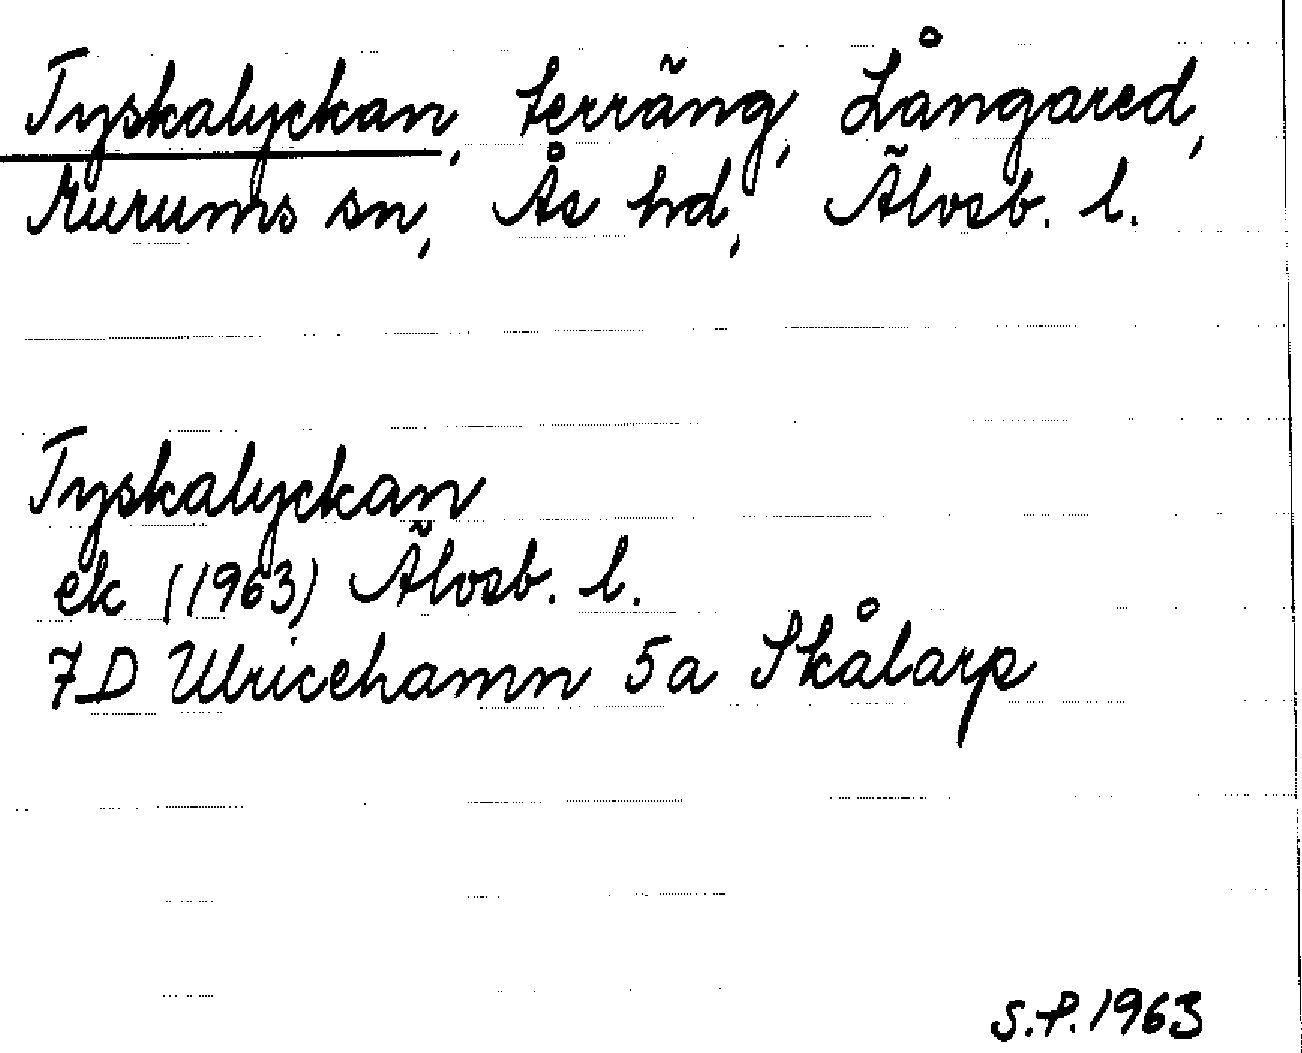 Tyskalyckan, terräng, Långared,
Murums sn, Ås hd, Älvsb. l.
Tyskalyckan
ek (1963) Älvsb. l.
7D Ulricehamn 5a Skålarp
S.P. 1963